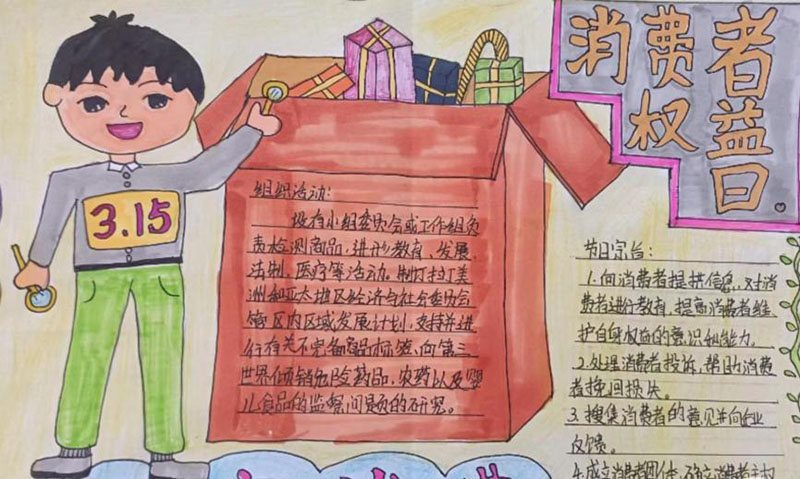 消费者
权益日。
3.15
组织活动:
设有小组委员会或工作组负
责检测商品,进行教育、发展、
法制、医疗等活动,制订拉丁美
洲和亚太地区经济与社会委员会
管区内区域发展计划,支持并进
行有关不完备商品标签,向第三
世界倾销危险药品,农药以及婴
儿食品的监督问题的研究。
节日宗旨:
1.向消费者提供信息,对消
费者进行教育,提高消费者维
护自身权益的意识和能力。
2.处理消费者投诉,帮助消费
者挽回损失。
3.搜集消费者的意见并向企业
反馈。
4.成立消费者团体,确立消费者主权